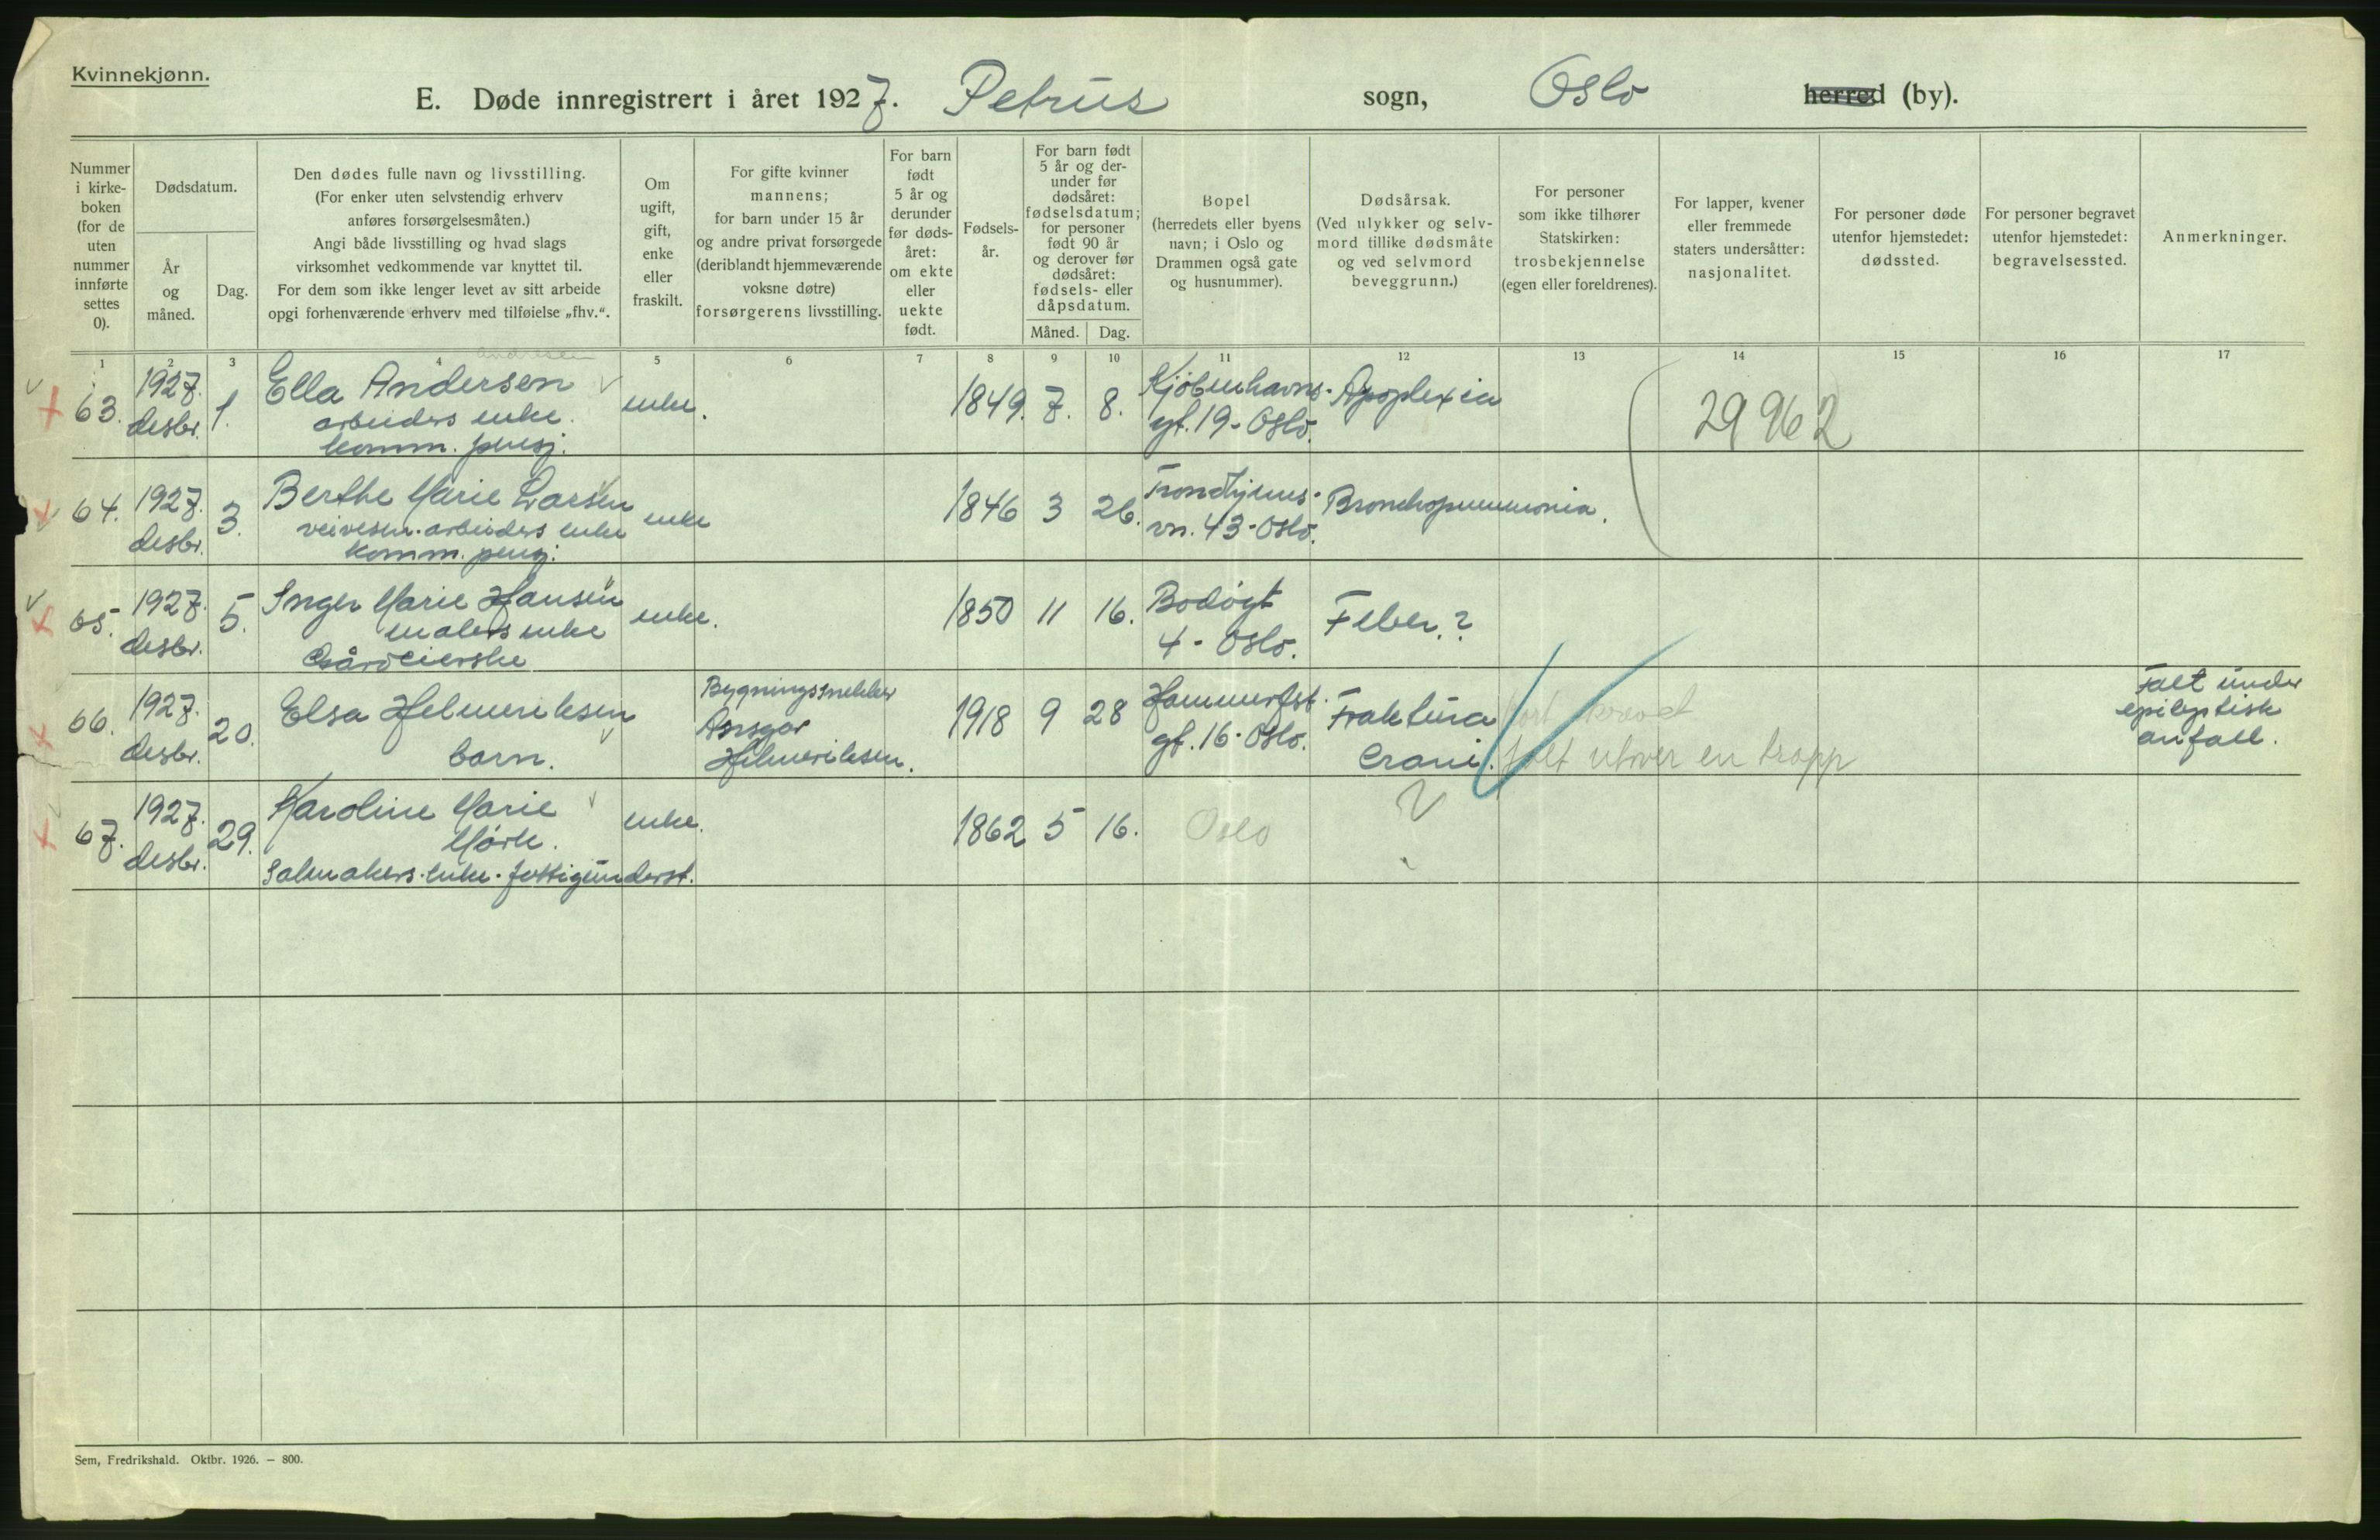 Kvinnekjønn.
E. Døde innregistrert i året 1927. Petrus sogn, Oslo herred (by).
Nummer i kirke- boken (for de uten nummer innførte settes 0).
Dødsdatum.
År og måned.
Dag.
Den dødes fulle navn og livsstilling.
(For enker uten selvstendig erhverv
anføres forsørgelsesmåten.)
Angi både livsstilling og hvad slags
virksomhet vedkommende var knyttet til.
For dem som ikke lenger levet av sitt arbeide
opgi forhenværende erhverv med tilføielse „fhv.“.
Om ugift, gift, enke eller fraskilt.
For gifte kvinner
mannens;
for barn under 15 år
og andre privat forsørgede
(deriblandt hjemmeværende
voksne døtre)
forsørgerens livsstilling.
For barn født 5 år og derunder før døds- året: om ekte eller uekte født.
Fødsels- år.
For barn født
5 år og der-
under før
dødsåret:
fødselsdatum;
for personer
født 90 år
og derover før
dødsåret:
fødsels- eller
dåpsdatum.
Måned. Dag.
Bopel
(herredets eller byens
navn; i Oslo og
Drammen også gate
og husnummer).
Dødsårsak.
(Ved ulykker og selv-
mord tillike dødsmåte
og ved selvmord
beveggrunn.)
For personer
som ikke tilhører
Statskirken:
trosbekjennelse
(egen eller foreldrenes).
For lapper, kvener
eller fremmede
staters undersåtter:
nasjonalitet.
For personer døde
utenfor hjemstedet:
dødssted.
For personer begravet
utenfor hjemstedet:
begravelsessted.
Anmerkninger.
1 2 3 4 5 6 7 8 9 10 11 12 13 14 15 16 17
andresen
63. 1927. desbr. 1. Ella Andersen
arbeiders enke.
komm. pensj.
enke. 1849. 7. 8. Kjöbenhavns-
gt. 19 - Oslo.
Apoplexia
29962
64. 1927. desbr. 3. Berthe Marie Larsen
veivesen-arbeiders enke
komm. pensj.
enke 1846 3 26. Trondhjems-
vn. 43 - Oslo.
Bronchopneumonia.
65. 1927. desbr. 5. Inger Marie Hansen
malers enke
Gårdeierske
enke. 1850 11 16. Bodögt
4 - Oslo.
Feber.?
66. 1927. desbr. 20. Elsa Helmeriksen
barn.
Bygningssnekker
Ansgar
Helmeriksen.
1918 9 28 Hammerfest-
gt. 16 - Oslo.
Fraktura
Crani.
falt utover en trapp
Falt under
epileptisk
anfall.
67. 1927. desbr. 29. Karoline Marie
Mörk.
Salmakers-enke. fattigunderst.
enke. 1862 5 16. Oslo
Sem, Fredrikshald. Oktbr. 1926. — 800.